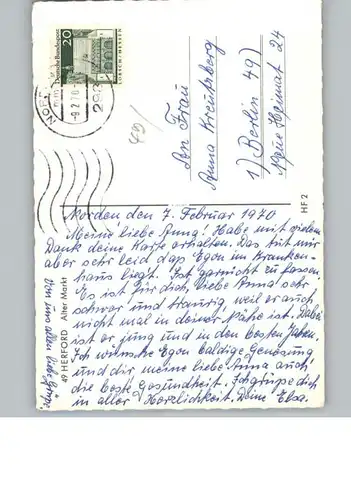 20
Deutsche Bundespost
LORSCH/HESSEN
NORD
-9.2.70
293
49/
An Frau
Anna Kreutzberg
1) Berlin 49)
Neue Heimat 24
Norden den 7. Februar 1970
Meine liebe Anna! Habe mit vielem
Dank deine Karte erhalten. Das tut mir
aber sehr leid dap Egon im Kranken-
haus liegt. Ist garnicht zu fassen.
Es ist für dich, liebe Anna sehr
schwer und traurig, weil er auch
nicht mal in deiner Nähe ist. Dabei
ist er jung und in den besten Jahren.
Ich wünsche Egon baldige Genesung
und dir meine liebe Anna auch,
die beste Gesundheit. Ich grüpe dich
in aller Herzlichkeit. Deine Elsa.
Von uns allen liebe Grüpe.
49 HERFORD Alter Markt
HF 2